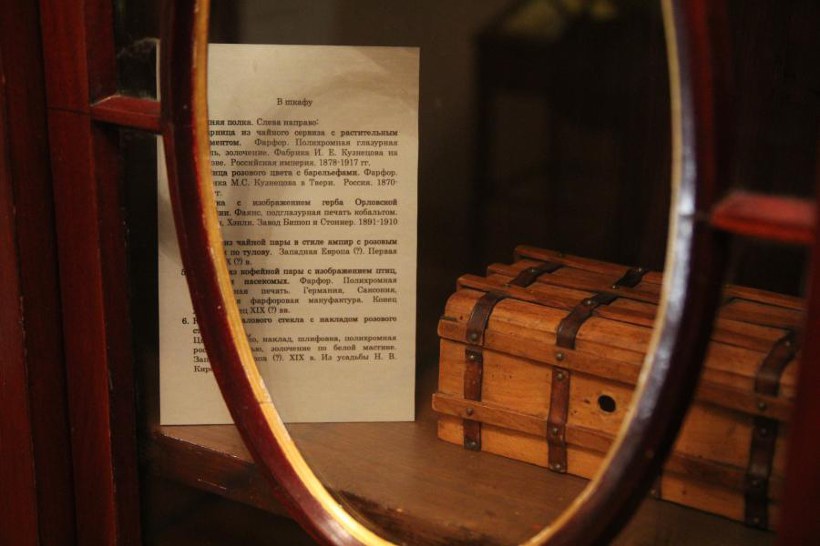 В шкафу
няя полка. Слева направо:
рница из чайного сервиза с растительным
ментом. Фарфор. Полихромная глазурная
ь, золочение. Фабрика И. Е. Кузнецова на
ове. Российская империя. 1878-1917 гг.
ица розового цвета с барельефами. Фарфор.
ика М.С. Кузнецова в Твери. Россия. 1870-
гг.
ка с изображением герба Орловской
ии. Фаянс, подглазурная печать кобальтом.
Хэнли. Завод Бишоп и Стониер. 1891-1910
из чайной пары в стиле ампир с розовым
по тулову. Западная Европа (?). Первая
X (?) в.
из кофейной пары с изображением птиц,
насекомых. Фарфор. Полихромная
ная печать. Германия, Саксония,
фарфоровая мануфактура. Конец
ец XIX (?) вв.
6. лового стекла с накладом розового
ст
Ц бо, наклад, шлифовка, полихромная
рос ью, золочение по белой мастике.
Зап опа (?). XIX в. Из усадьбы Н. В.
Кир